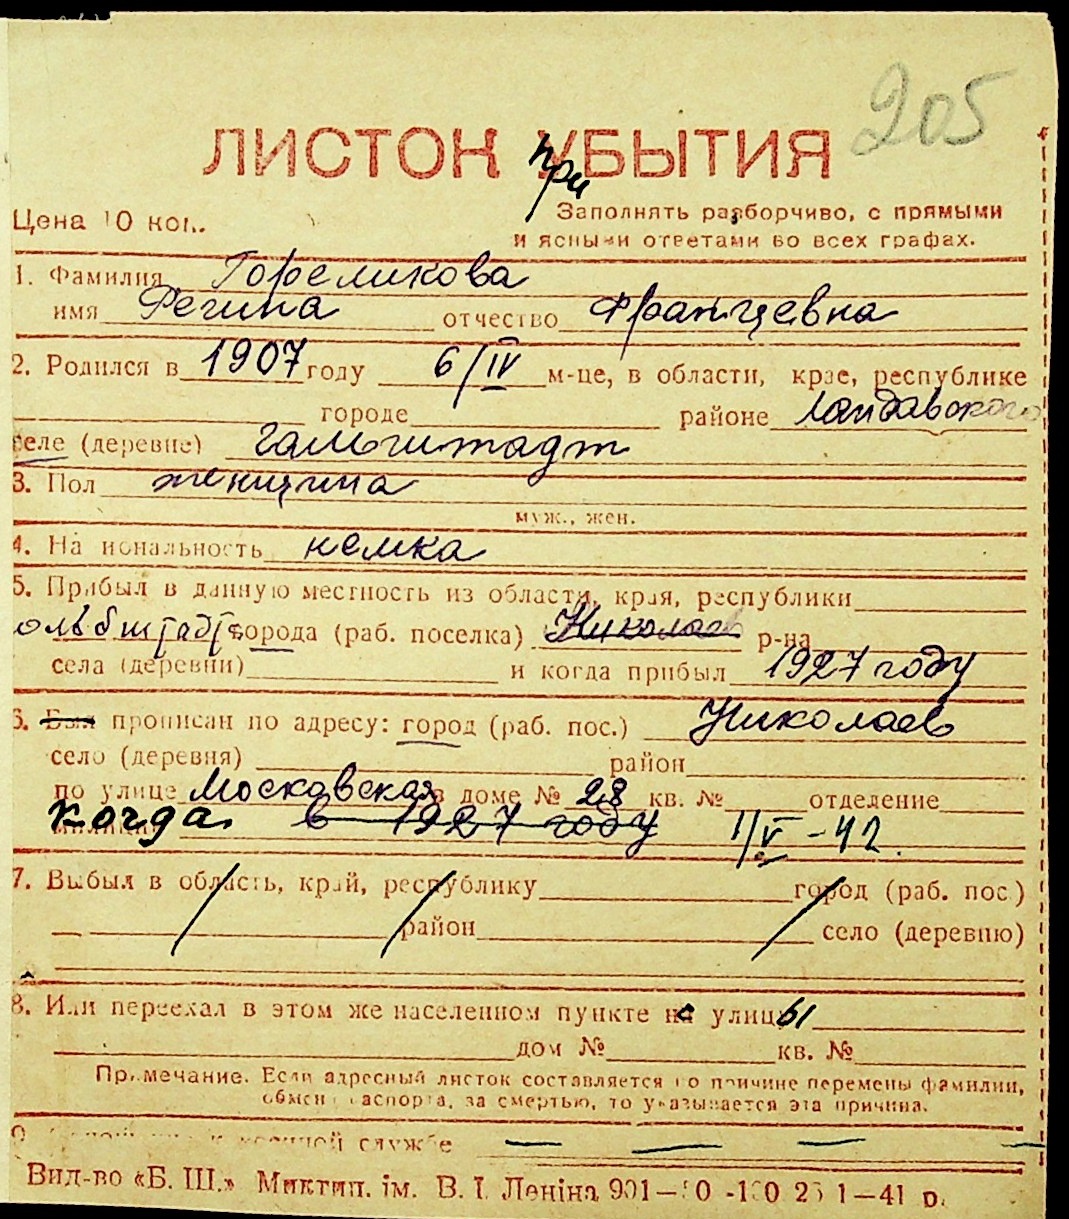 205
ЛИСТОК УБЫТИЯ
при
Цена 10 коп.
Заполнять разборчиво, с прямыми
и ясными ответами во всех графах.
1. Фамилия Гореликова
имя Регина отчество Францевна
2. Родился в 1907 году 6/IV м-це, в области, крае, республике
городе районе Ландавского
селе (деревне) Гальбштадт
3. Пол женщина
муж., жен.
4. Национальность немка
5. Прибыл в данную местность из области, края, республики
города (раб. поселка) Николаев р-на
села (деревни) и когда прибыл 1927 году
6. Был прописан по адресу: город (раб. пос.) Николаев
село (деревня) район
по улице Московская в доме № 28 кв. № отделение
милиции когда в 1927 году 1/V - 42.
7. Выбыл в область, край, республику город (раб. пос.)
район село (деревню)
8. Или переехал в этом же населенном пункте с улицы
дом № кв. №
Примечание. Если адресный листок составляется по причине перемены фамилии,
обмена паспорта, за смертью, то указывается эта причина.
9. военной службе
Вид-во «Б. Ш.» Миктип. ім. В. І. Леніна 1—41 р.